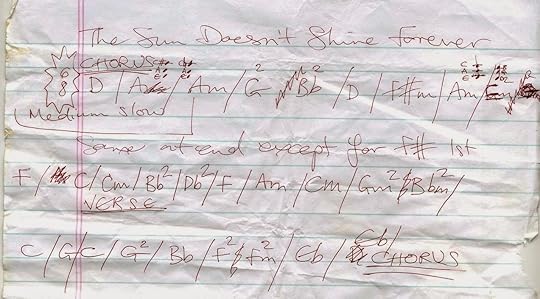 The Sun Doesn't Shine Forever
CHORUS
6 8 D / A / Am / G² Bb² / D / F#m / Am /
Medium slow
Same at end except for F# 1st
F / C / Cm / Bb² / Db² / F / Am / Cm / Gm² & Bbm² /
VERSE
C / G / C / G² / Bb / F² & Fm² / Eb / Eb /
CHORUS